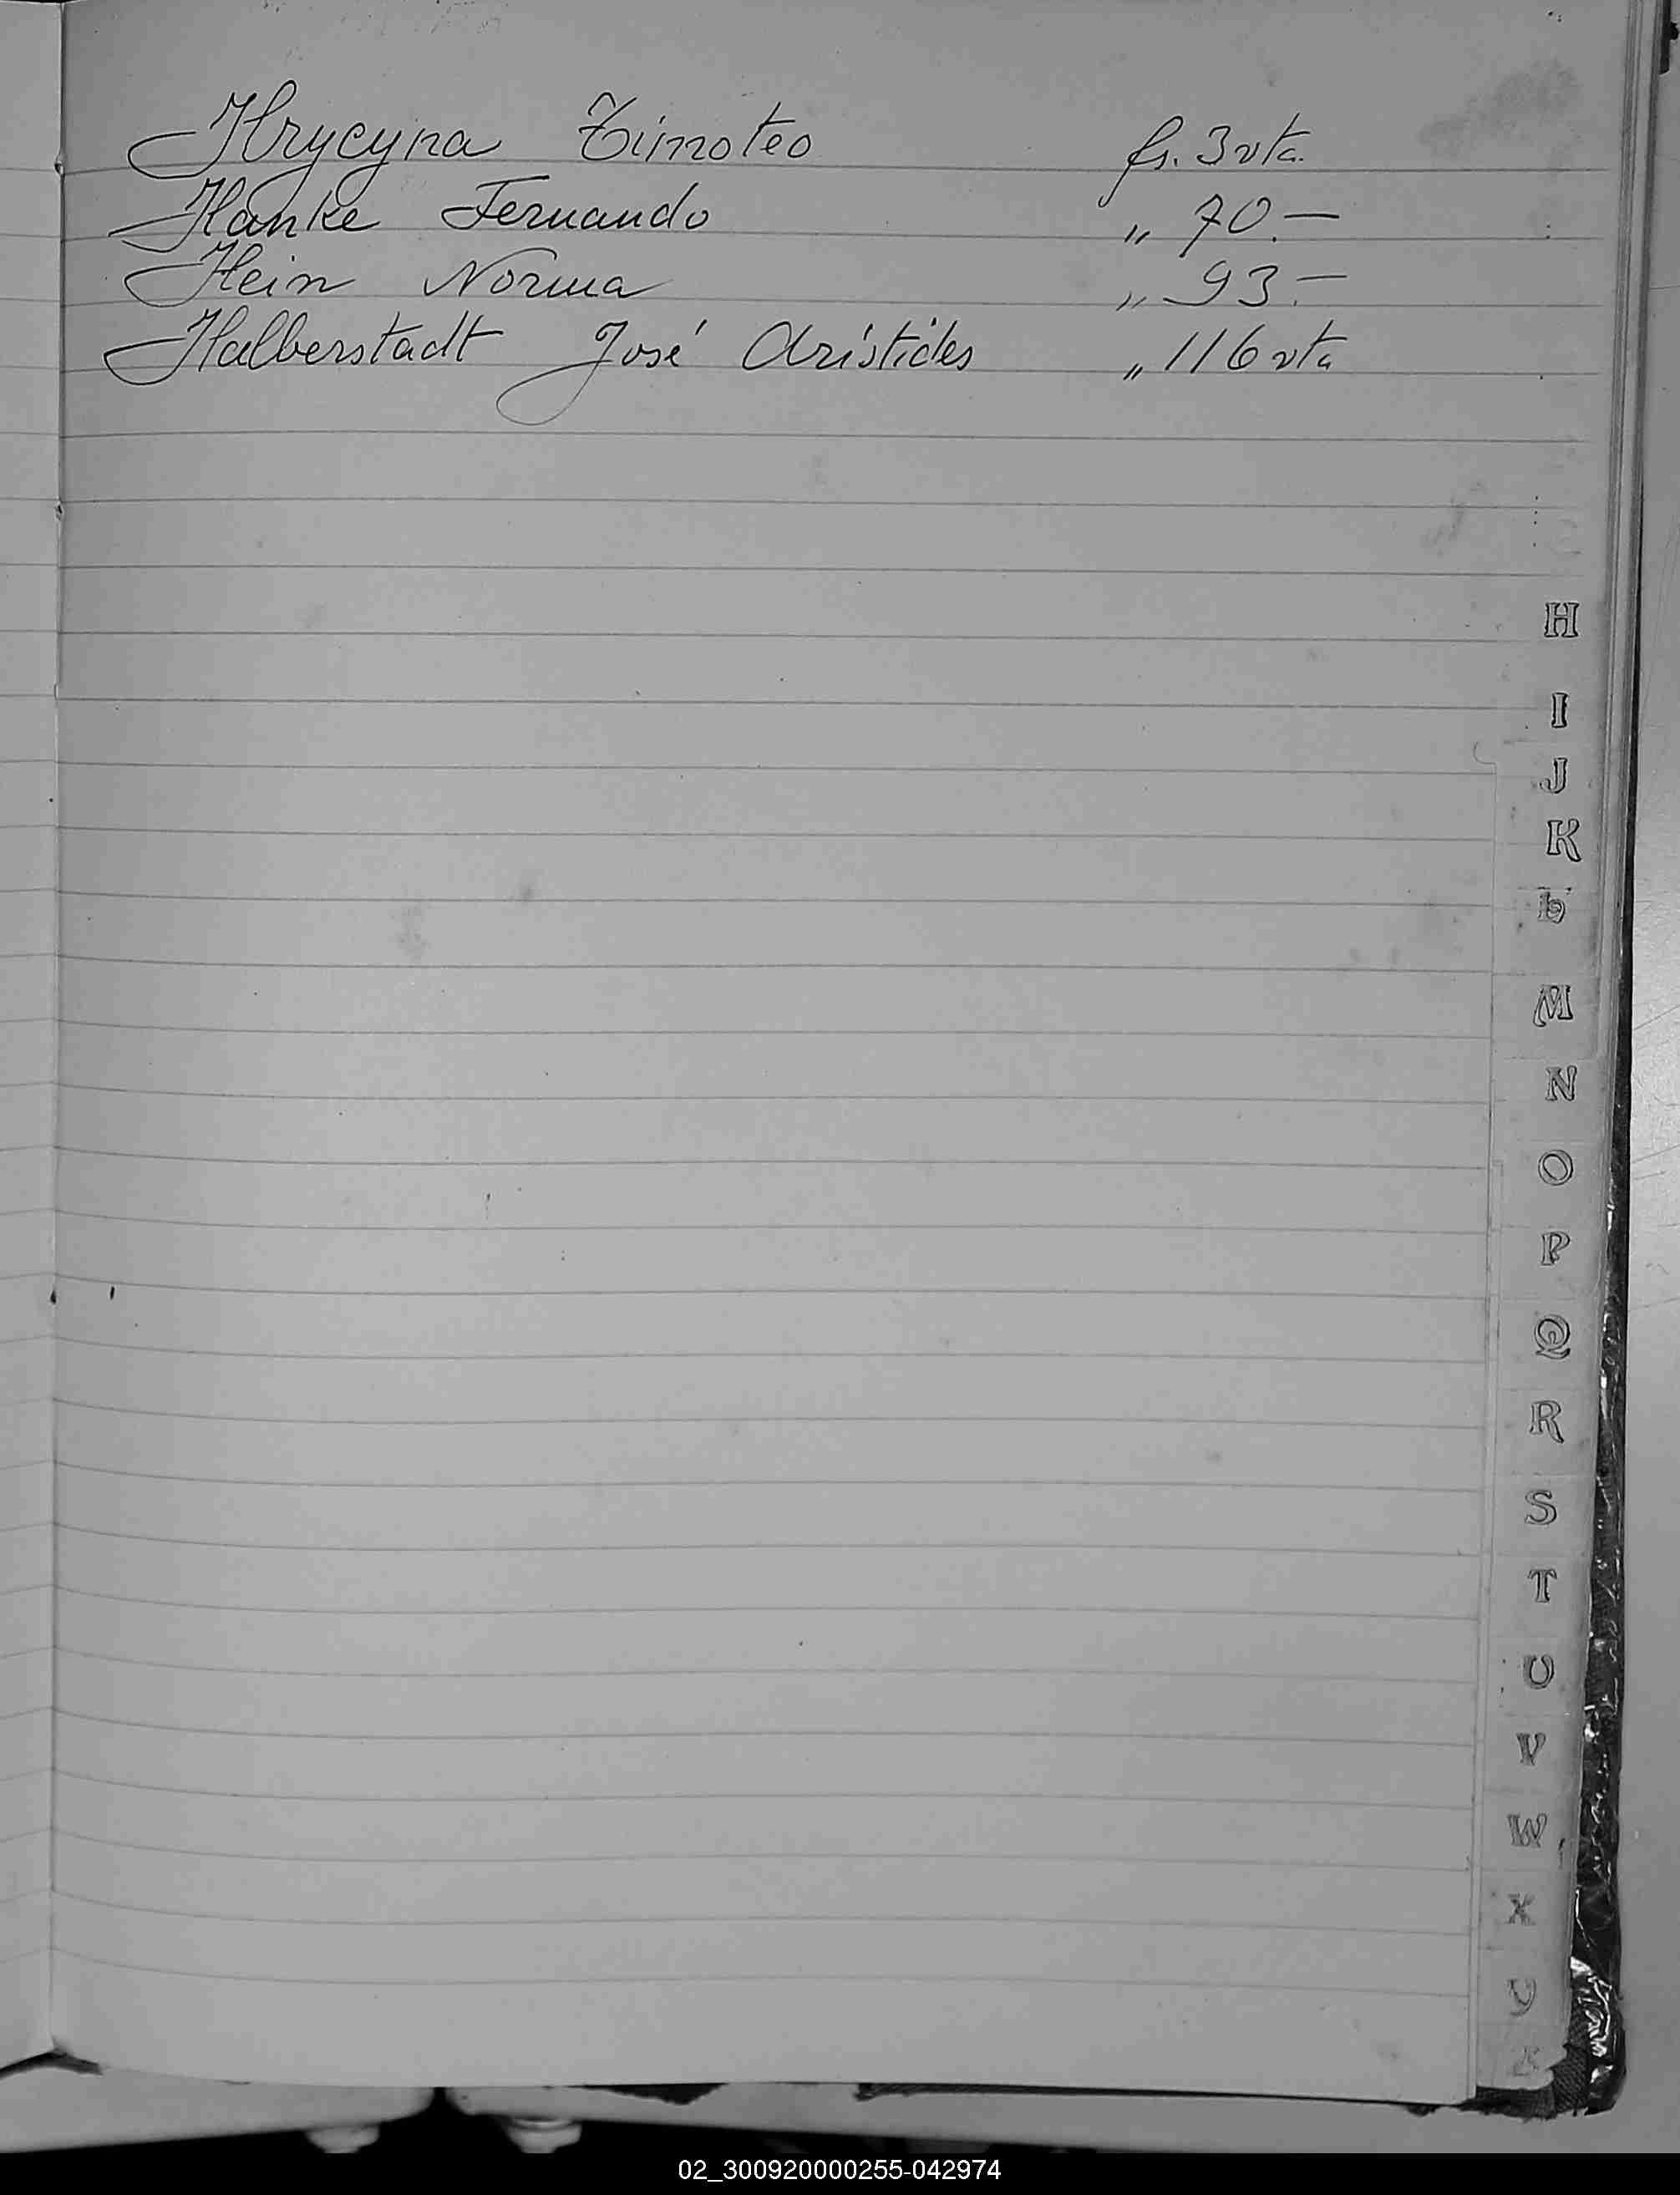 Hrycyna Timoteo fs. 3 vta.
Hanke Fernando „ 70.—
Hein Norma „ 93.—
Halberstadt José Aristides „ 116 vta
H
I
J
K
L
M
N
O
P
Q
R
S
T
U
V
W
X
Y
Z
02_300920000255-042974